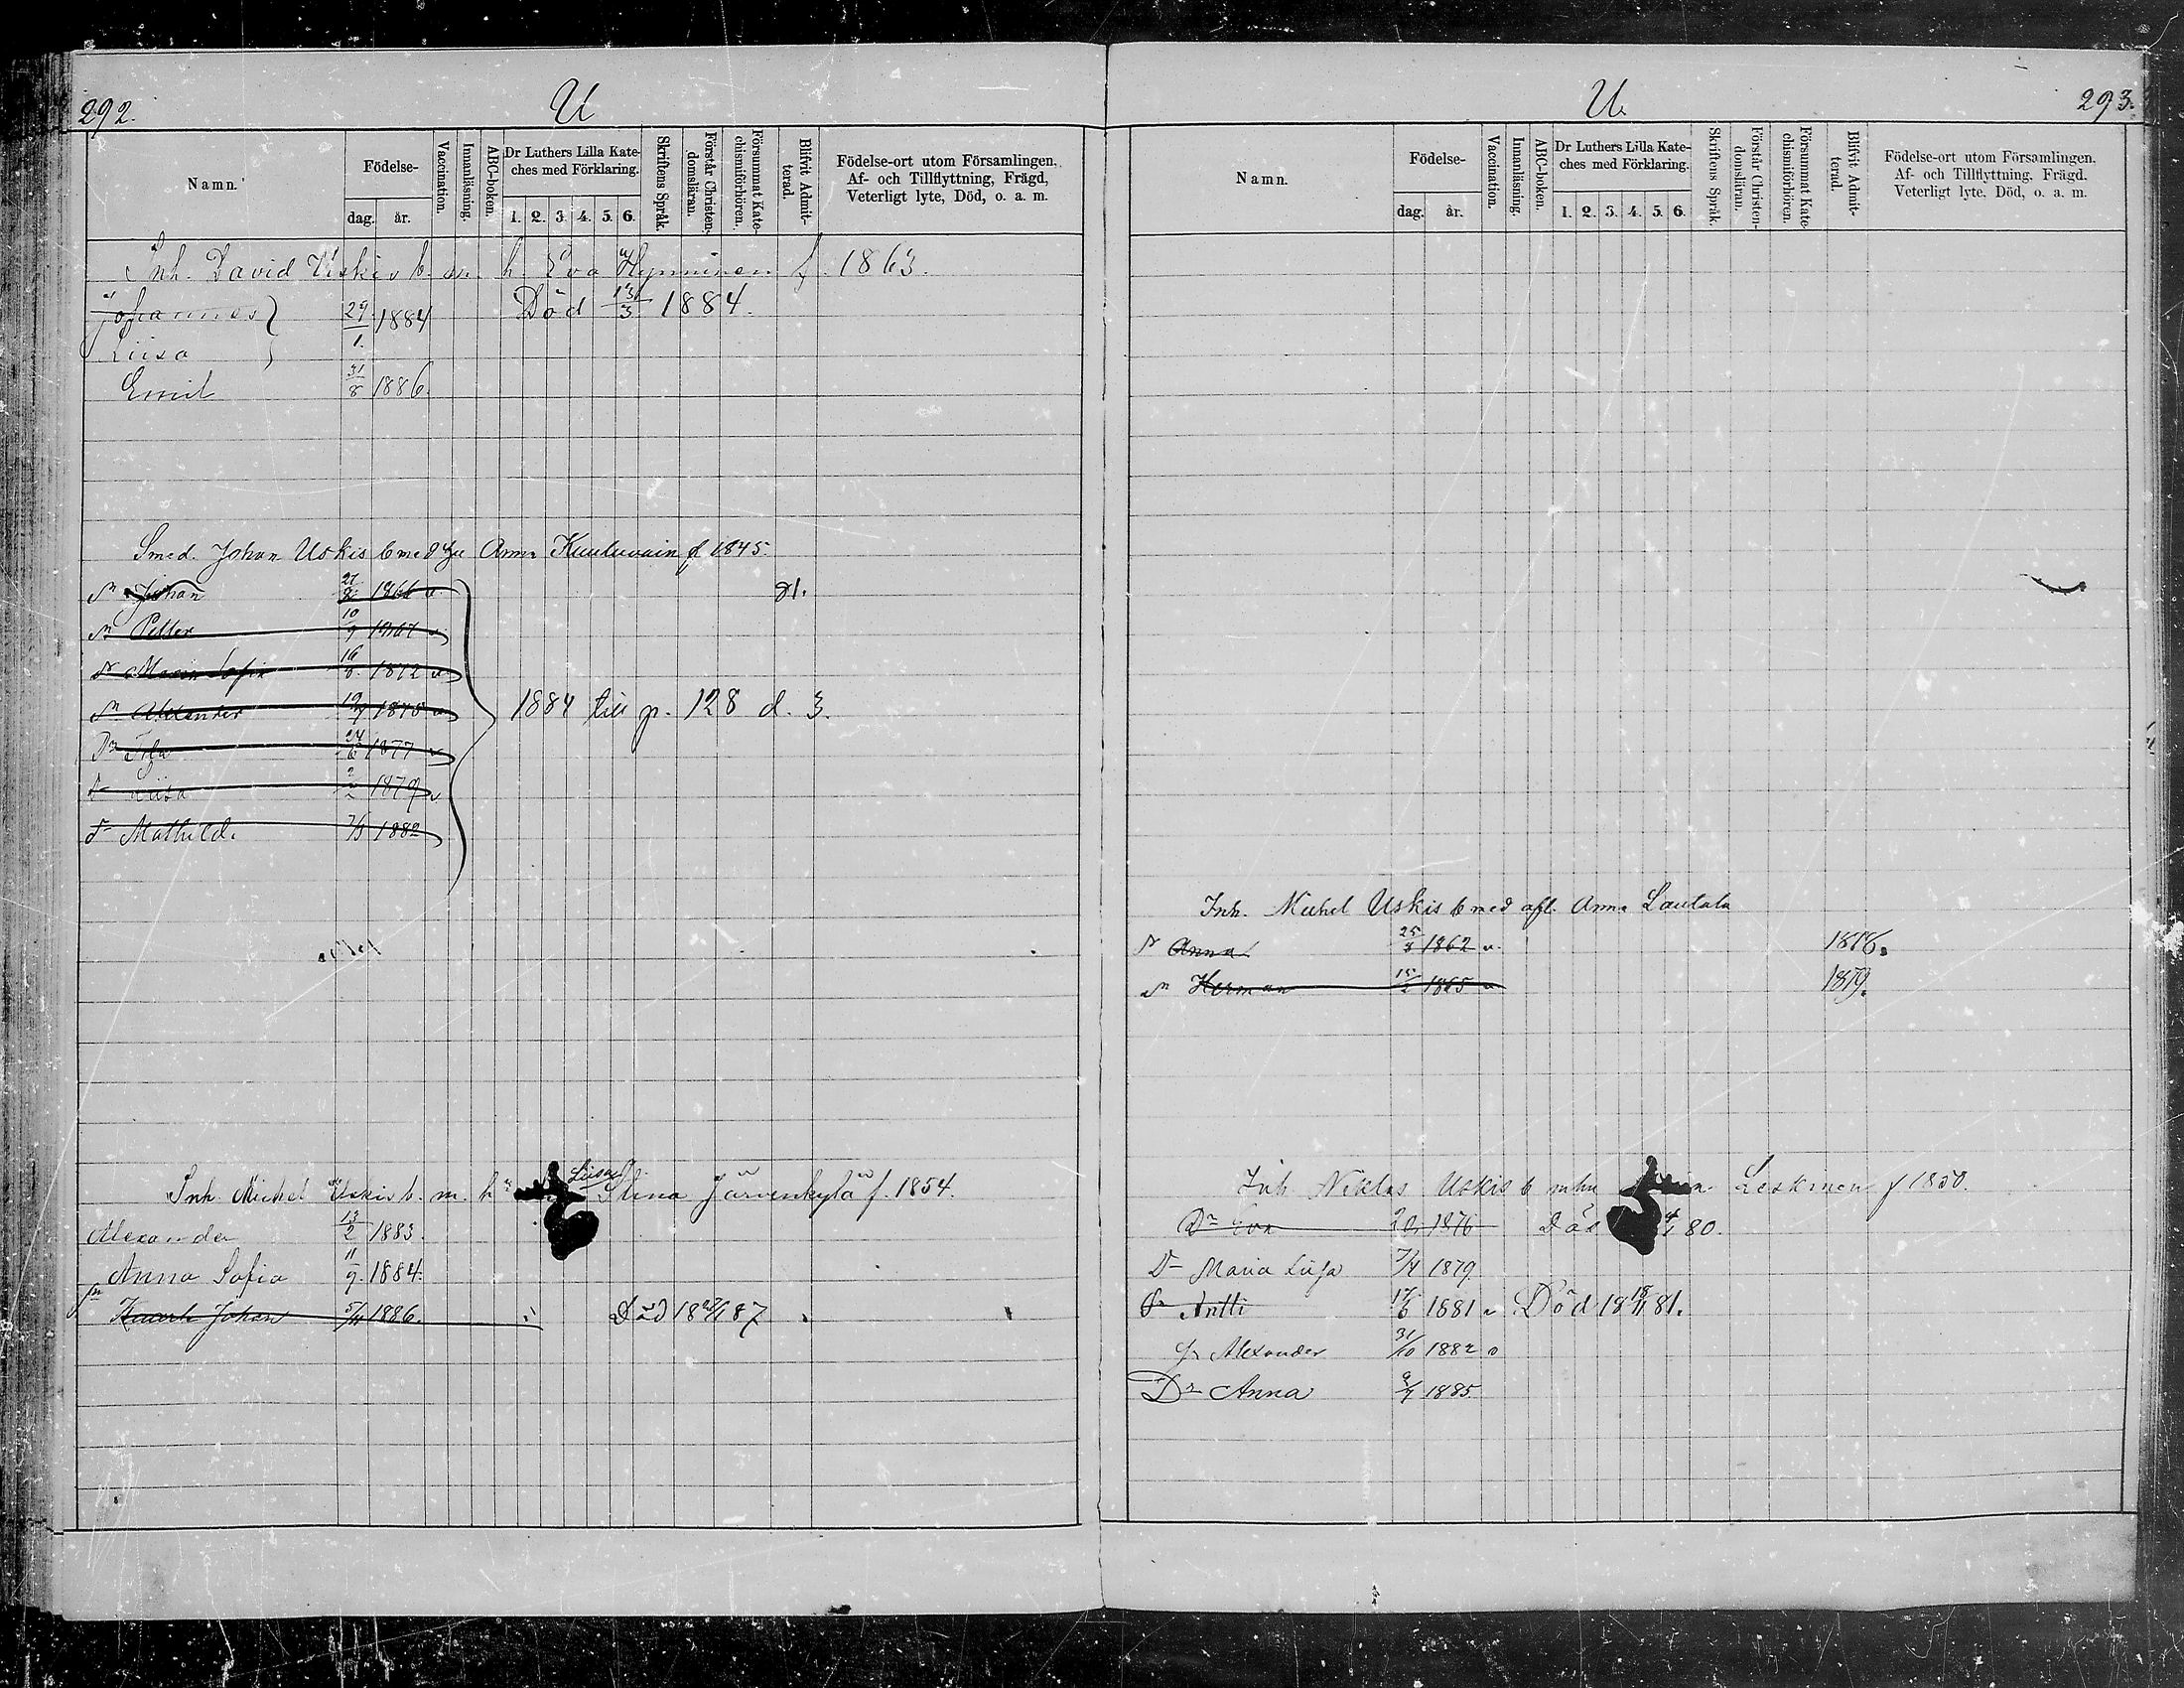 292.
U
Namn.
Födelse-
dag.
år.
Vaccination.
Innanläsning.
ABC-boken.
Dr Luthers Lilla Kate-
ches med Förklaring.
1. 2. 3. 4. 5. 6.
Skriftens Språk.
Förstår Christen-
domsläran.
Försummat Kate-
chismiförhören.
Blifvit Admit-
terad.
Födelse-ort utom Församlingen,
Af- och Tillflyttning, Frägd,
Veterligt lyte, Död, o. a. m.
Inh. David Uskis b. m. h. Eva Hynninen f. 1863.
Johannes 29/1 1884 Död 13/3 1884.
Liisa
Emil 31/8 1886.
Smed. Johan Uskis b med Anna Kuuluvain f 1845.
Sn Johan 1866 v. 81.
Sn Petter 10/9 1867 v
Dr Maria Sofia 16/8 1872 v
Sn Alexander 1875 v 1884 till p. 128 d. 3.
Dr 24/6 1877 v
Dr Liisa 2/2 1879 v
Dr Mathilda 1882
Inh. Michel Uskis b. m. h Liisa Stina Järvenkylä f. 1854.
Alexander 13/2 1883.
Anna Sofia 11/9 1884.
Sn Johan 5/11 1886. Död 1887
U.
293.
Namn.
Födelse-
dag.
år.
Vaccination.
Innanläsning.
ABC-boken.
Dr Luthers Lilla Kate-
ches med Förklaring.
1. 2. 3. 4. 5. 6.
Skriftens Språk.
Förstår Christen-
domsläran.
Försummat Kate-
chismiförhören.
Blifvit Admit-
terad.
Födelse-ort utom Församlingen.
Af- och Tillflyttning, Frägd.
Veterligt lyte, Död, o. a. m.
Inh. Michel Uskis b med afl. Anna Lautala
Dr Anna 25/8 1862 v. 1876.
Sn Herman 15/2 1865 v 1879.
Inh Niklas Uskis b m hu Leskinen f 1850.
Dr Eva 1876 Död 80.
Dr Maria Liisa 7/4 1879
Sn Antti 17/6 1881 v Död 18 18/11 81.
Sn Alexander 31/10 1882 v
Dr Anna 1885